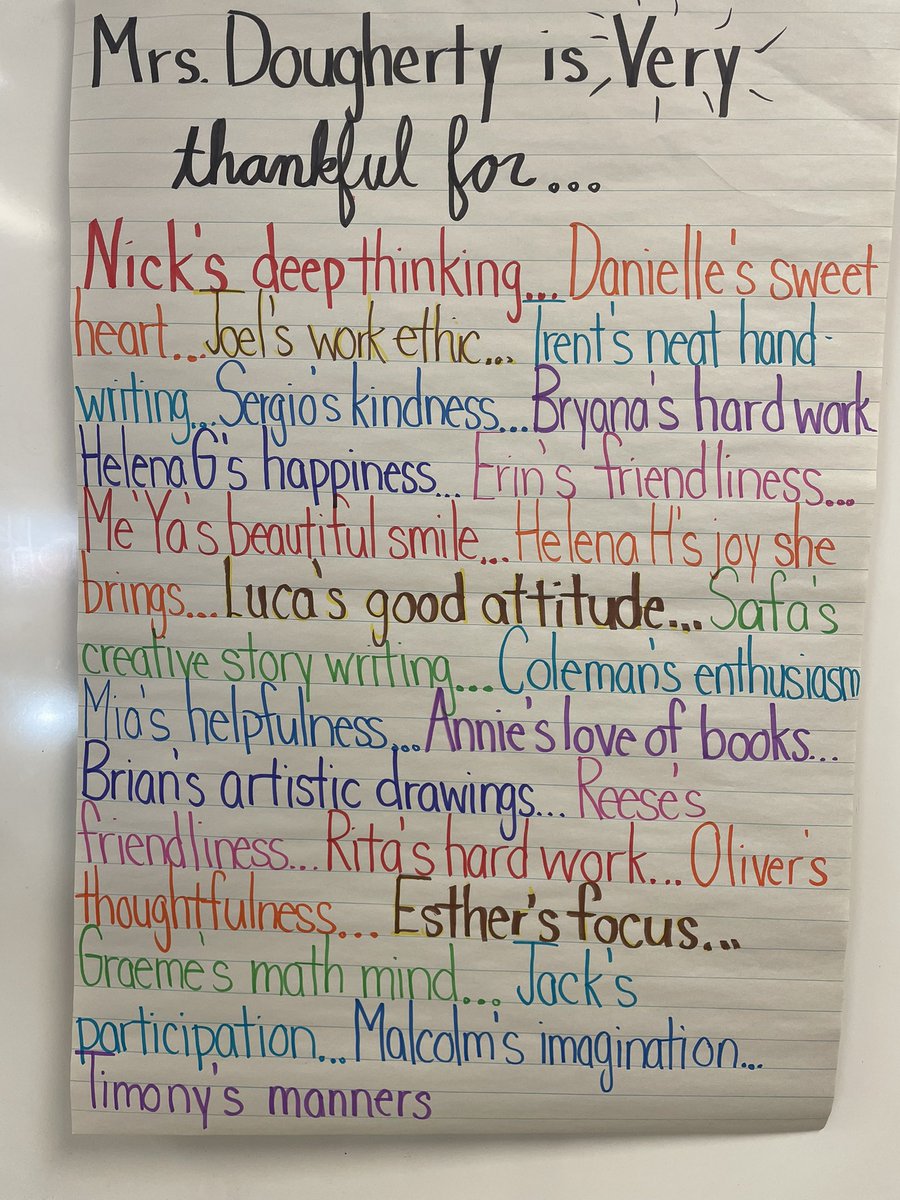 Mrs. Dougherty is Very
thankful for...
Nick's deep thinking... Danielle's sweet
heart... Joel's work ethic... Trent's neat hand-
writing... Sergio's kindness... Bryana's hard work
Helena G's happiness... Erin's friendliness...
Me'Ya's beautiful smile... Helena H's joy she
brings... Luca's good attitude... Safa's
creative story writing... Coleman's enthusiasm
Mia's helpfulness... Annie's love of books...
Brian's artistic drawings... Reese's
friendliness... Rita's hard work... Oliver's
thoughtfulness... Esther's focus...
Graeme's math mind... Jack's
participation... Malcolm's imagination...
Timony's manners